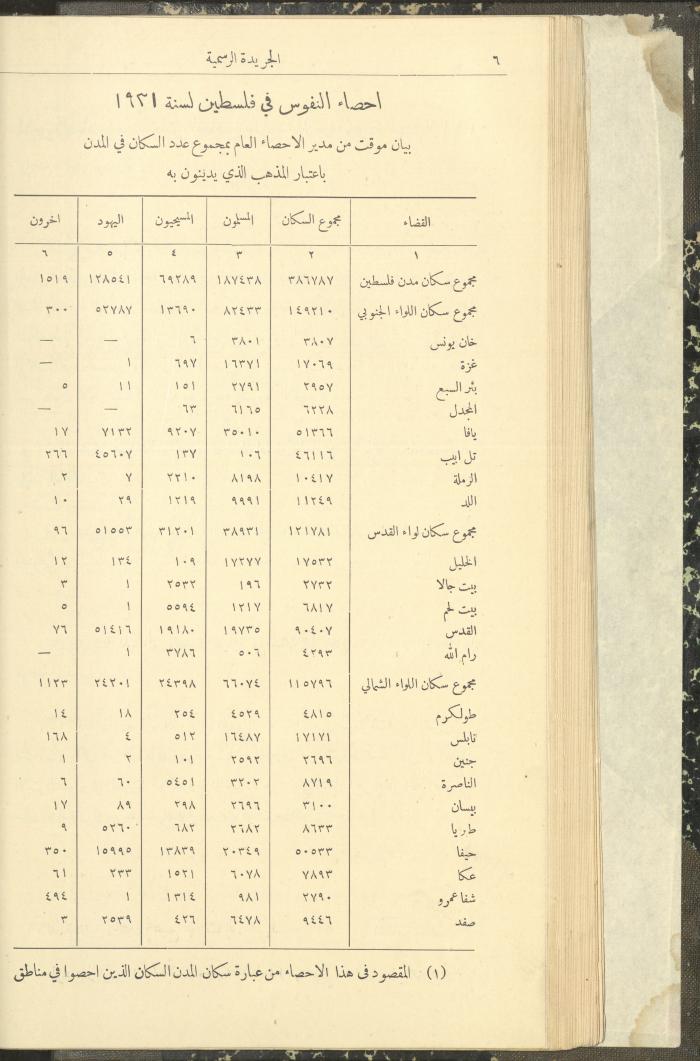 ٦ الجريدة الرسمية
احصاء النفوس في فلسطين لسنة ١٩٣١
بيان موقت من مدير الاحصاء العام بمجموع عدد السكان في المدن
باعتبار المذهب الذي يدينون به
القضاء مجموع السكان المسلمون المسيحيون اليهود اخرون
١ ٢ ٣ ٤ ٥ ٦
مجموع سكان مدن فلسطين ٣٨٦٧٨٧ ١٨٧٤٣٨ ٦٩٢٨٩ ١٢٨٥٤١ ١٥١٩
مجموع سكان اللواء الجنوبي ١٤٩٢١٠ ٨٢٤٣٣ ١٣٦٩٠ ٥٢٧٨٧ ٣٠٠
خان يونس ٣٨٠٧ ٣٨٠١ ٦ — —
غزة ١٧٠٦٩ ١٦٣٧١ ٦٩٧ ١ —
بئر السبع ٢٩٥٧ ٢٧٩١ ١٥١ ١١ ٥
المجدل ٦٢٢٨ ٦١٦٥ ٦٣ — —
يافا ٥١٣٦٦ ٣٥٠١٠ ٩٢٠٧ ٧١٣٢ ١٧
تل ابيب ٤٦١١٦ ١٠٦ ١٣٧ ٤٥٦٠٧ ٢٦٦
الرملة ١٠٤١٧ ٨١٩٨ ٢٢١٠ ٧ ٢
اللد ١١٢٤٩ ٩٩٩١ ١٢١٩ ٢٩ ١٠
مجموع سكان لواء القدس ١٢١٧٨١ ٣٨٩٣١ ٣١٢٠١ ٥١٥٥٣ ٩٦
الخليل ١٧٥٣٢ ١٧٢٧٧ ١٠٩ ١٣٤ ١٢
بيت جالا ٢٧٣٢ ١٩٦ ٢٥٣٢ ١ ٣
بيت لحم ٦٨١٧ ١٢١٧ ٥٥٩٤ ١ ٥
القدس ٩٠٤٠٧ ١٩٧٣٥ ١٩١٨٠ ٥١٤١٦ ٧٦
رام الله ٤٢٩٣ ٥٠٦ ٣٧٨٦ ١ —
مجموع سكان اللواء الشمالي ١١٥٧٩٦ ٦٦٠٧٤ ٢٤٣٩٨ ٢٤٢٠١ ١١٢٣
طولكرم ٤٨١٥ ٤٥٢٩ ٢٥٤ ١٨ ١٤
نابلس ١٧١٧١ ١٦٤٨٧ ٥١٢ ٤ ١٦٨
جنين ٢٦٩٦ ٢٥٩٢ ١٠١ ٢ ١
الناصرة ٨٧١٩ ٣٢٠٢ ٥٤٥١ ٦٠ ٦
بيسان ٣١٠٠ ٢٦٩٦ ٢٩٨ ٨٩ ١٧
طبريا ٨٦٣٣ ٢٦٨٢ ٦٨٢ ٥٢٦٠ ٩
حيفا ٥٠٥٣٣ ٢٠٣٤٩ ١٣٨٣٩ ١٥٩٩٥ ٣٥٠
عكا ٧٨٩٣ ٦٠٧٨ ١٥٢١ ٢٣٣ ٦١
شفا عمرو ٢٧٩٠ ٩٨١ ١٣١٤ ١ ٤٩٤
صفد ٩٤٤٦ ٦٤٧٨ ٤٢٦ ٢٥٣٩ ٣
(١) المقصود فى هذا الاحصاء من عبارة سكان المدن السكان الذين احصوا في مناطق